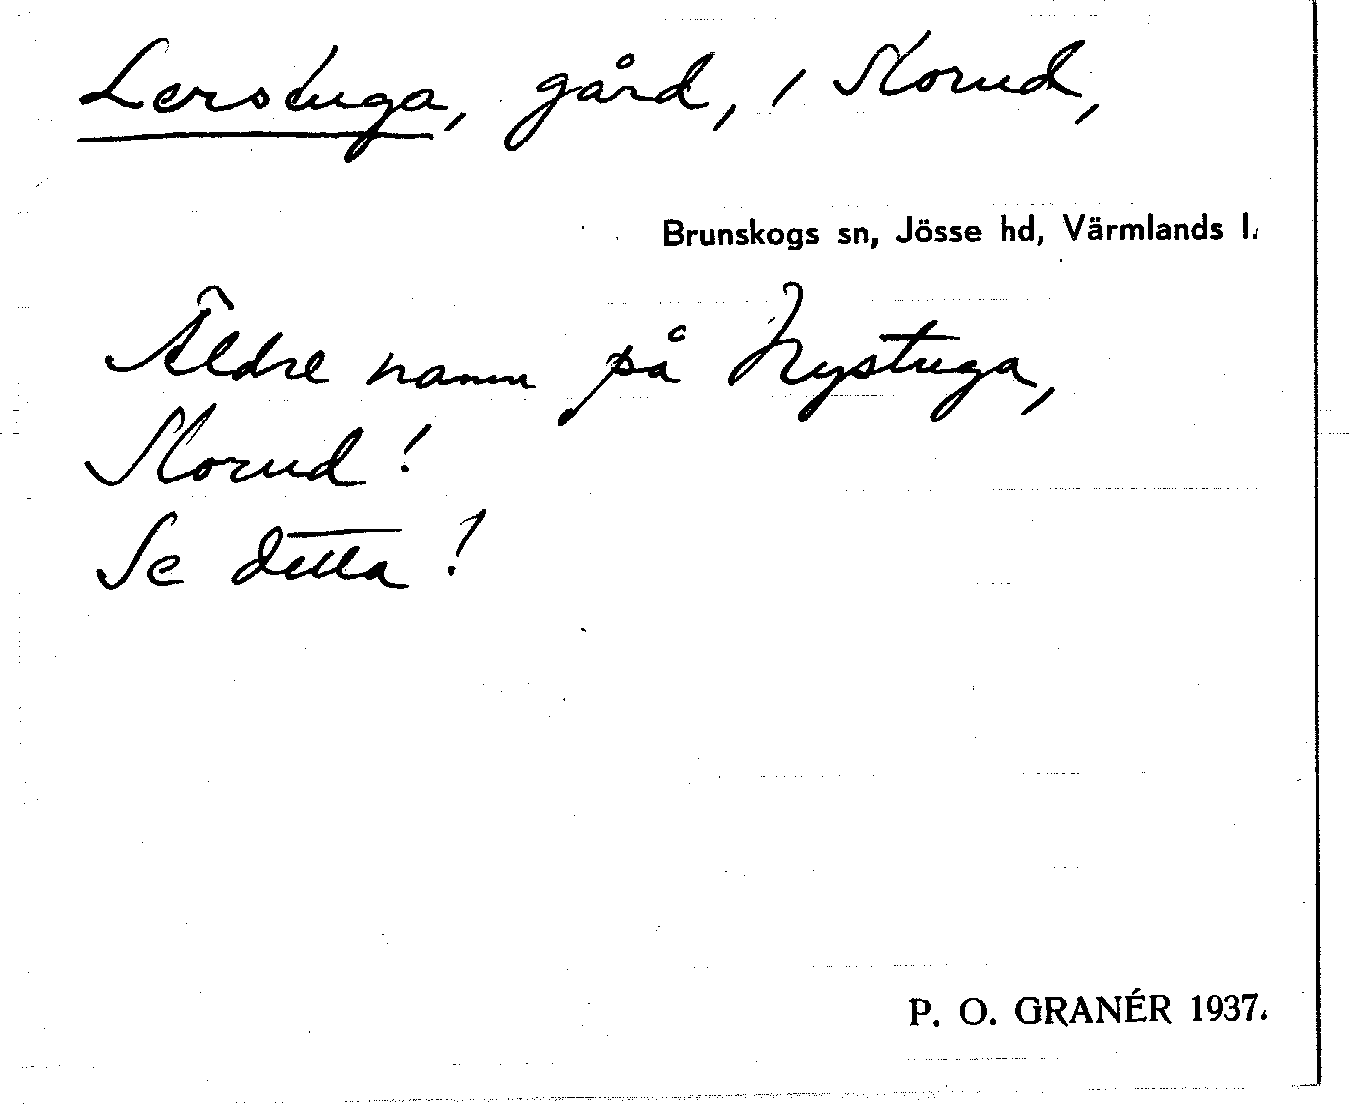 Lerstuga, gård, i Slorud,
Brunskogs sn, Jösse hd, Värmlands l.
Äldre namn på Nystuga,
Slorud!
Se detta!
P. O. GRANÉR 1937.